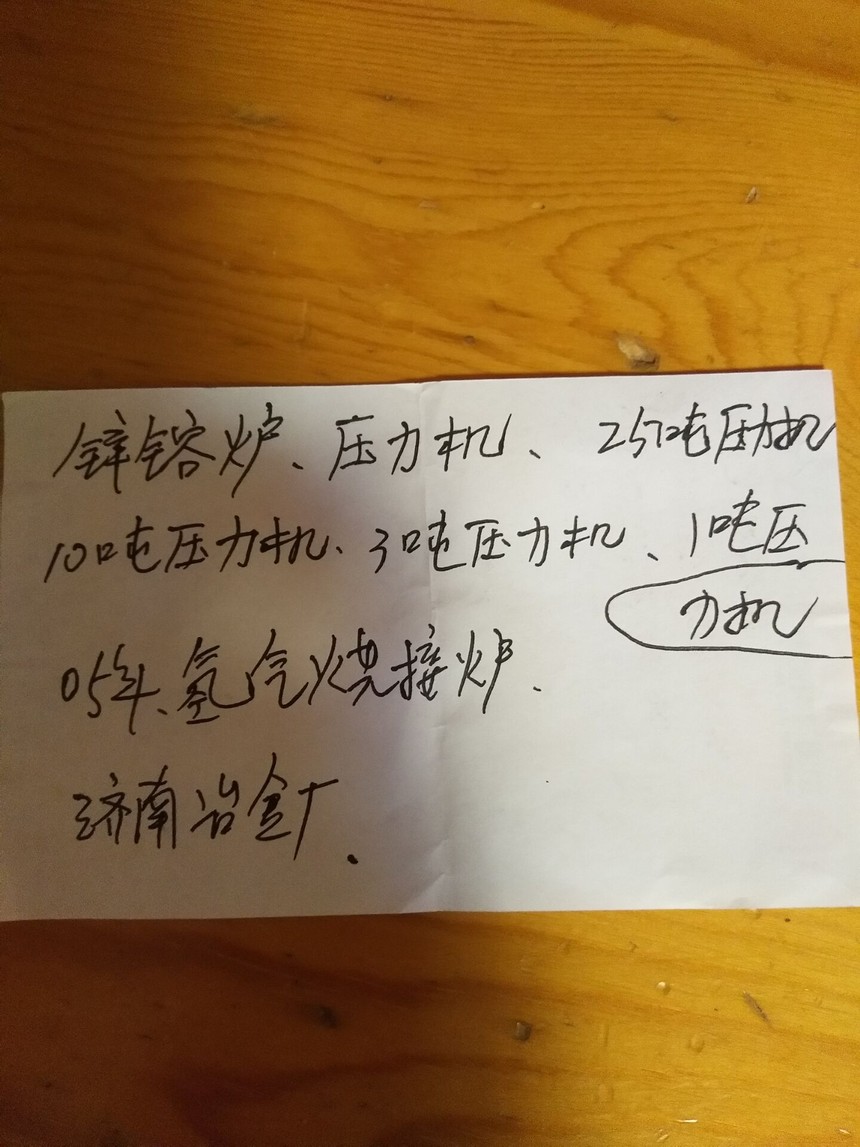 锌熔炉、压力机、25吨压力机
10吨压力机、3吨压力机、1吨压
力机
05年、氢气烧接炉、
济南冶金厂.